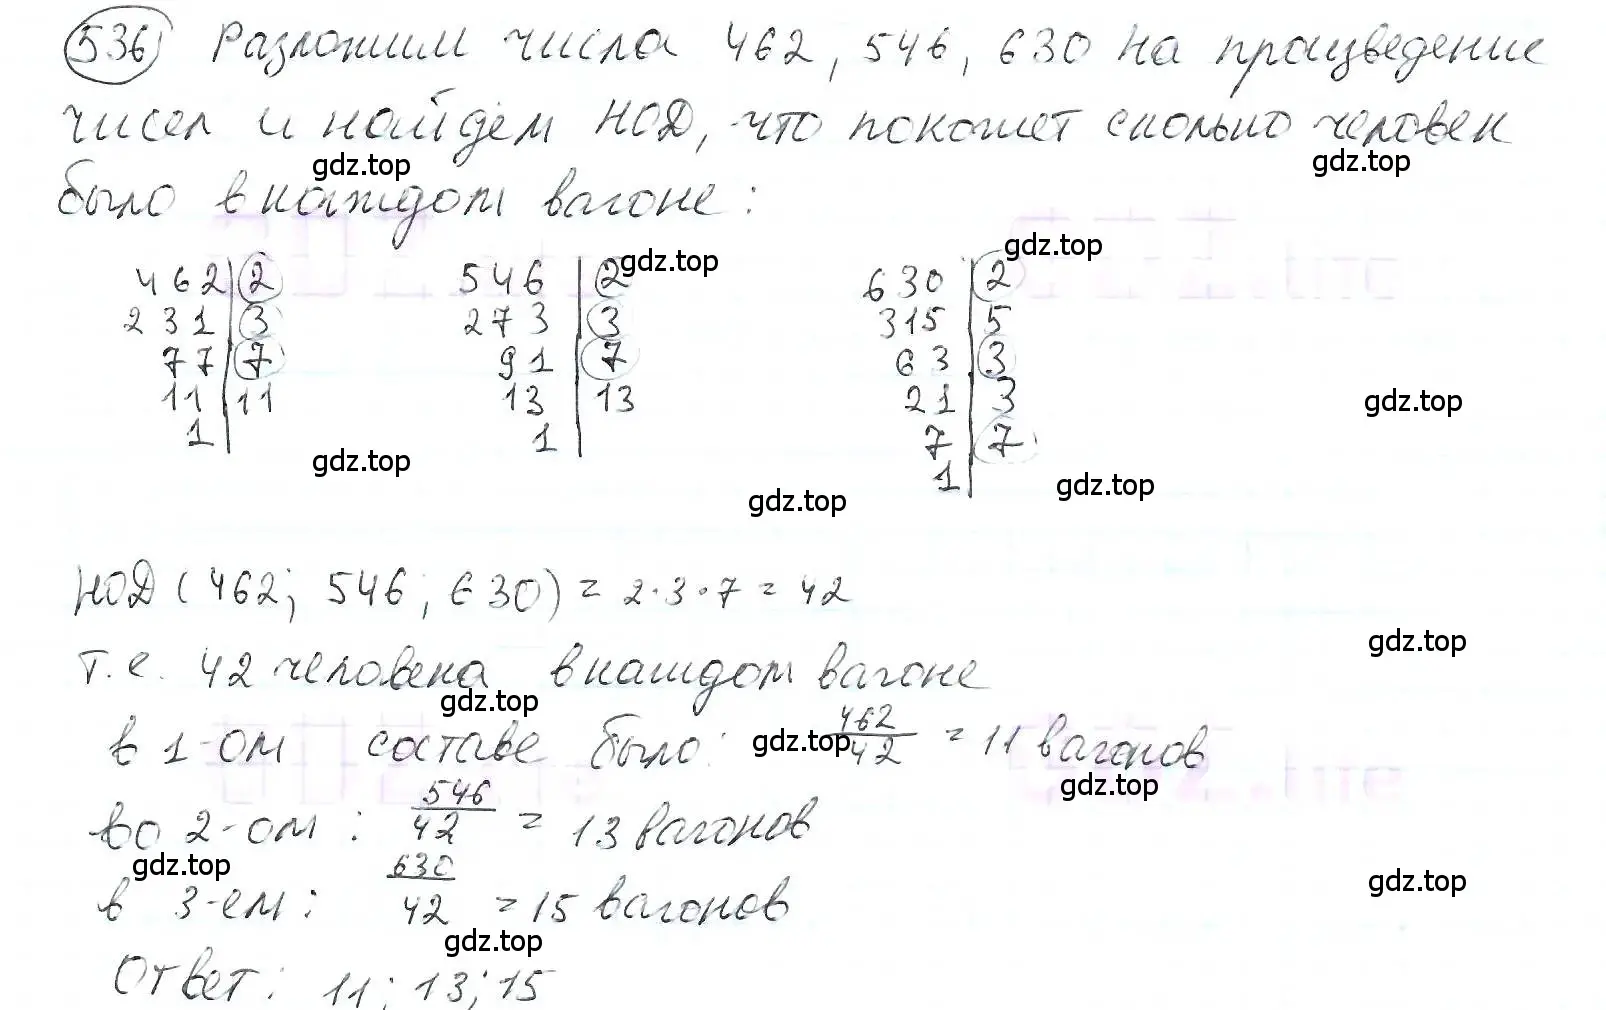 536 Разложим числа 462, 546, 630 на произведение
чисел и найдём НОД, что покажет сколько человек
gdz.top gdz.top
было в каждом вагоне:
gdz.top
gdz.top
462 | 2 546 | 2 630 | 2
231 | 3 273 | 3 315 | 5
77 | 7 91 | 7 63 | 3
11 | 11 13 | 13 21 | 3
gdz.top
1 1 7 | 7
gdz.top
1
gdz.top
gdz.top
НОД (462; 546; 630) = 2·3·7 = 42
gdz.top
т.е. 42 человека в каждом вагоне
gdz.top
в 1-ом составе было: 462/42 = 11 вагонов
gdz.top
gdz.top
во 2-ом: 546/42 = 13 вагонов
gdz.top
gdz.top
в 3-ем: 630/42 = 15 вагонов
gdz.top
Ответ: 11; 13; 15